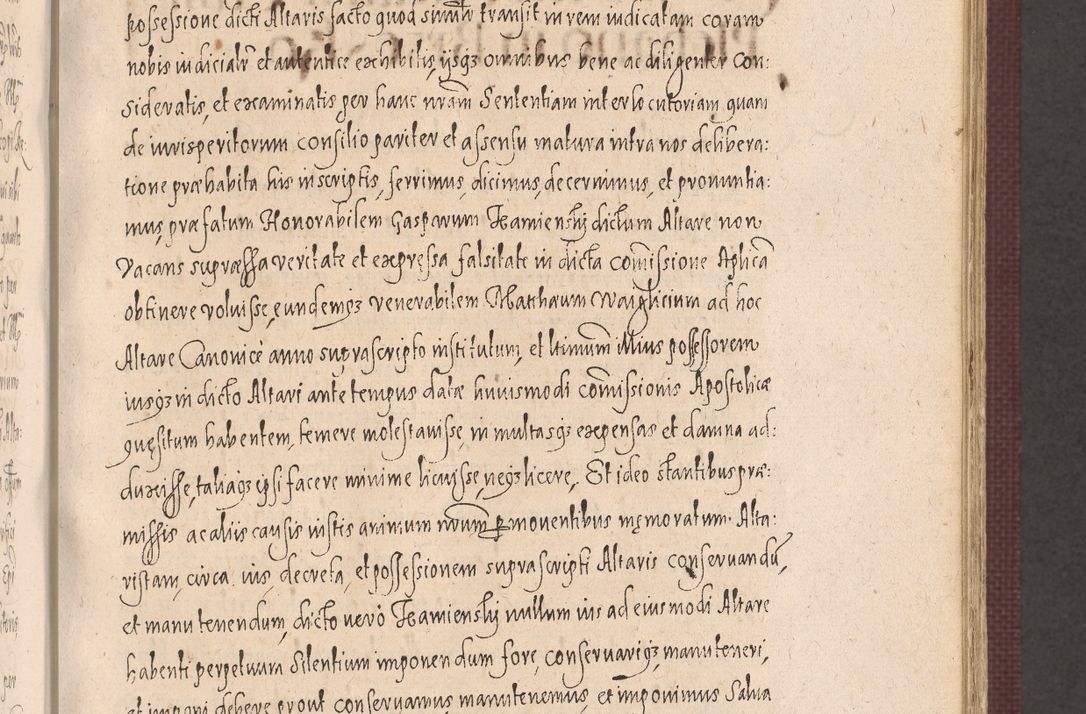 possessione dicti Altaris facto quod similr transit in rem iudicatam coram
nobis iudicialr et autentice exhibitis, ijsqз omnibus bene ac diligenter con:
sideratis, et examinatis per hanc nram Sententiam interlocutoriam quam
de iurisperitorum consilio pariter et assensu matura intra nos delibera:
tione præhabita his in scriptis, ferrimus, dicimus, decernimus, et pronuntia:
mus, præfatum Honorabilem Gasparum Kamiensky dictum Altare non
vacans suppressa veritate et expressa falsitate in dicta comissione Aplica
obtinere voluisse, eundemqз venerabilem Matthæum Waiglicium ad hoc
Altare Canonicè anno suprascripto institutum, et ltimum illius possessorem
iusqз in dicto Altari ante tempus datæ huiusmodi comissionis Apostolicæ
quęsitum habentem, temere molestauisse, in multasqз expensas et damna ad:
duxisse, taliaqз ipsi facere minime licuisse, neqз licere. Et ideo stantibus præ:
missis ac aliis causis iustis animum nrum permouentibus męmoratum Alta:
ristam, circa ius, decreta, et possessionem suprascripti Altaris conseruandu,
et manutenendum, dicto verò Kamiensky nullum ius ad eiusmodi Altare
habenti perpetuum silentium imponendum fore, conseruariqз, manuteneri,
et imponi debere prout conseruamus manutenemus, et imponimus Salua